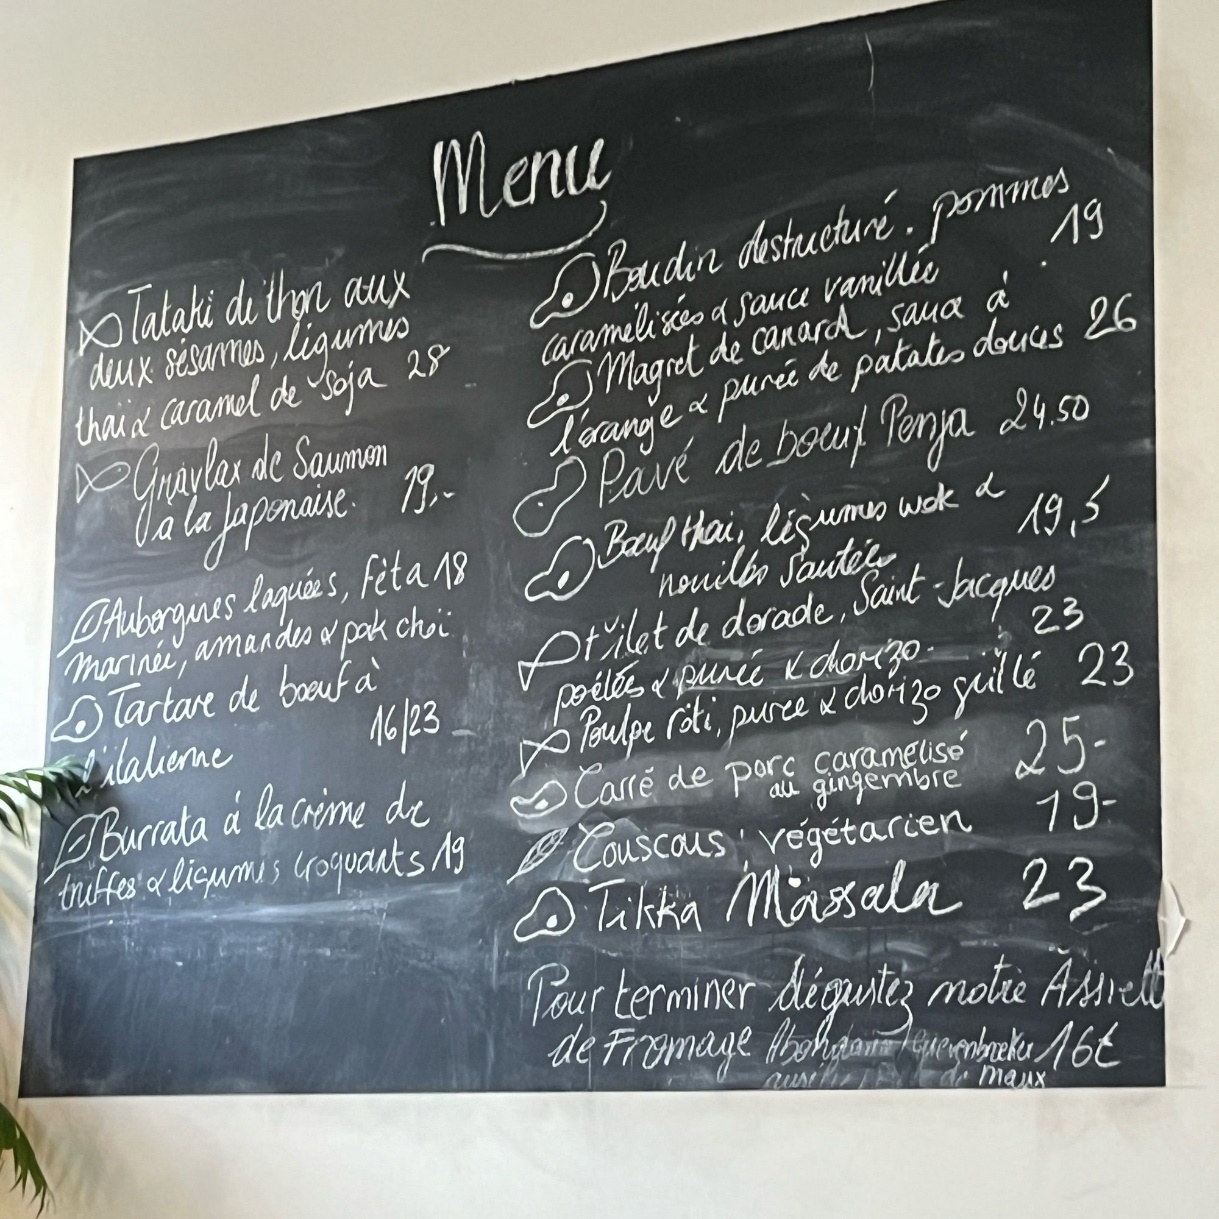 Menu
Tataki de thon aux
deux sésames, légumes
thaï & caramel de soja 28
Gravlax de Saumon
à la Japonaise. 19,-
Aubergines laquées, Fèta 18
marinée, amandes & pak choï
Tartare de boeuf à
l'italienne 16/23
Burrata à la crème de
truffes & légumes croquants 19
Boudin destructuré. pommes
caramélisées & sauce vanillée 19
Magret de canard, sauce à
l'orange & purée de patates douces 26
Pavé de boeuf Penja 24.50
Bœuf thai, légumes wok &
nouilles sautées 19,5
Filet de dorade, Saint-Jacques
poêlées & purée & chorizo. 23
Poulpe rôti, puree & chorizo grillé 23
Carré de porc caramélisé
au gingembre 25-
Couscous végétarien 19-
Tikka Massala 23
Pour terminer dégustez notre Assiette
de Fromage 16€
de maux